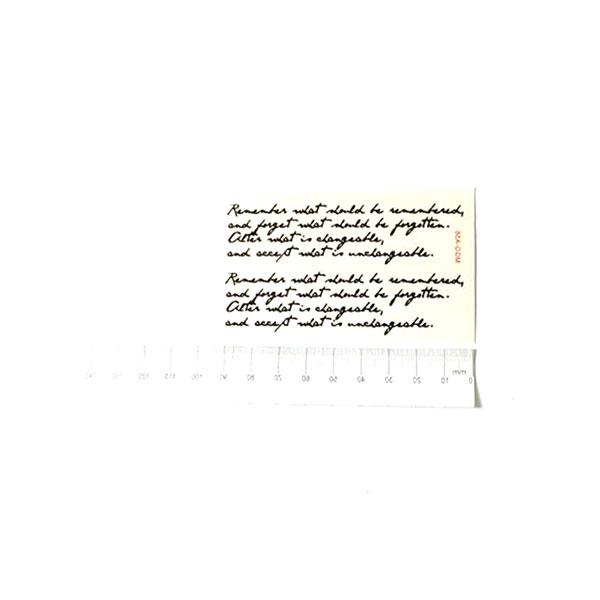 Remember what should be remembered,
and forget what should be forgotten.
Alter what is changeable,
and accept what is unchangeable.
Remember what should be remembered,
and forget what should be forgotten.
Alter what is changeable,
and accept what is unchangeable.
mm
140 130 120 110 100 90 80 70 60 50 40 30 20 10 0